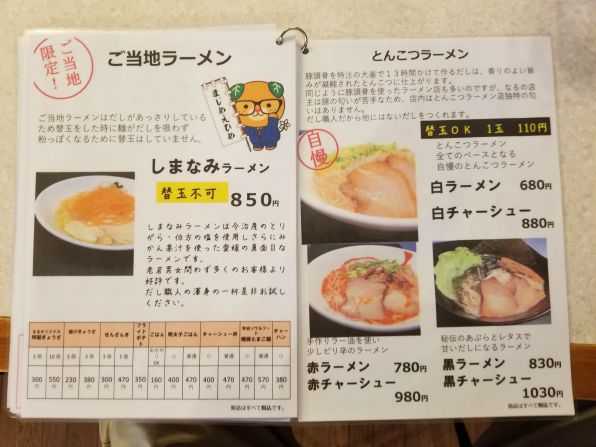 ご当地
限定！
ご当地ラーメン
まじめえひめ
ご当地ラーメンはだしがあっさりしている
ため替玉をした時に麺がだしを吸わず
粉っぽくなるために替玉はしていません。
しまなみラーメン
替玉不可
850円
しまなみラーメンは今治産のとり
がら・伯方の塩を使用しさらにみ
かん果汁を使った愛媛の真面目な
ラーメンです。
老若男女問わず多くのお客様より
好評です。
だし職人の渾身の一杯是非お試し
ください。
ぎょうざ
揚げぎょうざ
せんざんぎ
フライドポテト
ごはん
明太子ごはん
チャーシュー丼
焼豚玉子飯
チャーハン
300 550 230 380 300 470 350 160 400 470 400 470 470 570 380
円 円 円 円 円 円 円 円 円 円 円 円 円 円 円
税込はすべて税込です。
とんこつラーメン
豚頭骨を特注の大釜で13時間かけて作るだしは、香りのよい旨
みが凝縮されたとんこつに仕上がります。
同じように豚頭骨を使ったラーメン店も多いのですが、なるの店
主は豚の匂いが苦手なため、店内はとんこつラーメン店独特の匂
いはありません。
だし職人だから他にはないだしをつくれます。
自慢
替玉OK 1玉 110円
とんこつラーメン
全てのベースとなる
自慢のとんこつラーメン
白ラーメン 680円
白チャーシュー
880円
手作りラー油を使い
少しピリ辛のラーメン
赤ラーメン 780円
赤チャーシュー
980円
秘伝のあぶらとレタスで
甘いだしになるラーメン
黒ラーメン 830円
黒チャーシュー
1030円